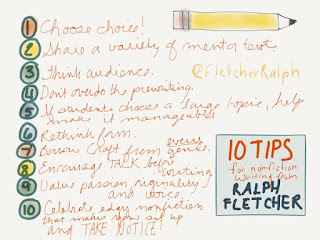 1 Choose choice!
2 Share a variety of mentor text.
3 Think audience.
@FletcherRalph
4 Don't overdo the prewriting.
5 If students choose a large topic, help
make it manageable
6 Rethink form.
7 Borrow craft from every
genre.
8 Encourage TALK before
writing
9 Value passion, originality
and voice.
10 Celebrate edgy nonfiction
that makes you sit up
and TAKE NOTICE!
10 TIPS
for nonfiction
writing from
RALPH
FLETCHER